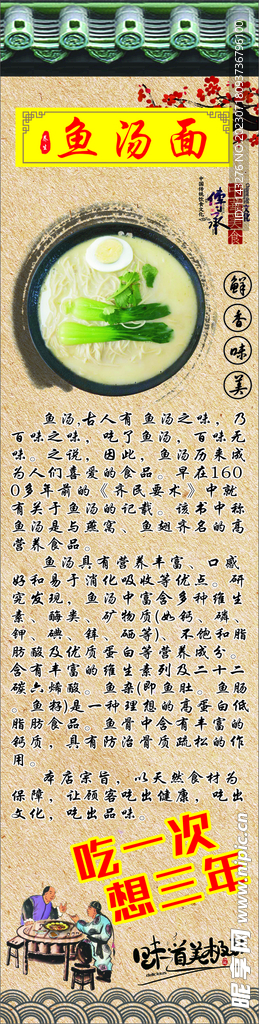 鱼汤面
中国传统饮食文化
传承
鲜
香
味
美
鱼汤,古人有鱼汤之味，乃
百味之味，吃了鱼汤，百味无
味。之说，因此，鱼汤历来成
为人们喜爱的食品。早在160
0多年前的《齐民要术》中就
有关于鱼汤的记载。该书中称
鱼汤是与燕窝、鱼翅齐名的高
营养食品。
鱼汤具有营养丰富、口感
好和易于消化吸收等优点。研
究发现，鱼汤中富含多种维生
素、酶类、矿物质(如钙、磷、
钾、碘、锌、硒等)、不饱和脂
肪酸及优质蛋白等营养成分。
含有丰富的维生素列及二十二
碳六烯酸。鱼杂(即鱼肚。鱼肠
。鱼籽)是一种理想的高蛋白低
脂肪食品。鱼骨中含有丰富的
钙质，具有防治骨质疏松的作
用。
本店宗旨，以天然食材为
保障，让顾客吃出健康，吃出
文化，吃出品味。
吃一次
想三年
味道美极
delicious
昵享网 www.nipic.cn